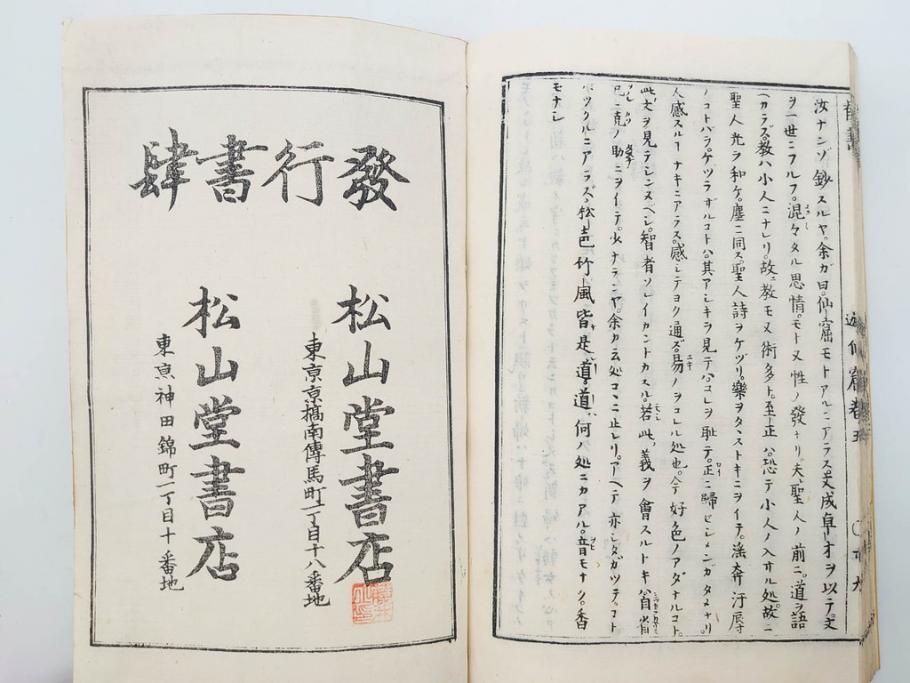 汝ナンゾ鈔スルヤ。余ガ曰。仙窟モトアルニアラス文成卓才ヲ以テ。文
ヲ一世ニフルフ。混々タル思情。モト又性ノ發ナリ夫聖人ノ前ニ。道ヲ語
ヘカラズ。教ハ小人ニナレリ。故ニ教モ又術多ト。至正ハ恐テ小人ノ入オル処。故ニ
聖人光ヲ和ケ。塵ニ同ス。聖人詩ヲケヅリ。樂ヲタヽストキニヲイテ。淫奔汙辱
ノコトバヲ。ケヅラザルコトハ。其アシキヲ見テ。コレヲ恥テ。正ニ歸セシメンガタメナリ
人感スルナキニアラス。感シテヨク通ズ。易ノヲコレル処也。今好色ノアダナルコト。
此文ヲ見テシンヌベシ。智者ソレイカントカスル。若此義ヲ會スルトキハ
克ノ助ニヲイテ。少ナテンヤ。余カ云処コヽニ止レリ。アヘテ亦シタガツテ。コト
ツクルニアラズ。松色竹風皆是道。道何ノ処ニカアル。音モナク。香
モナシ
遊仙窟卷五
發行書肆
松山堂書店
東京京橋南傳馬町一丁目十八番地
松山堂書店
東京神田錦町一丁目十番地